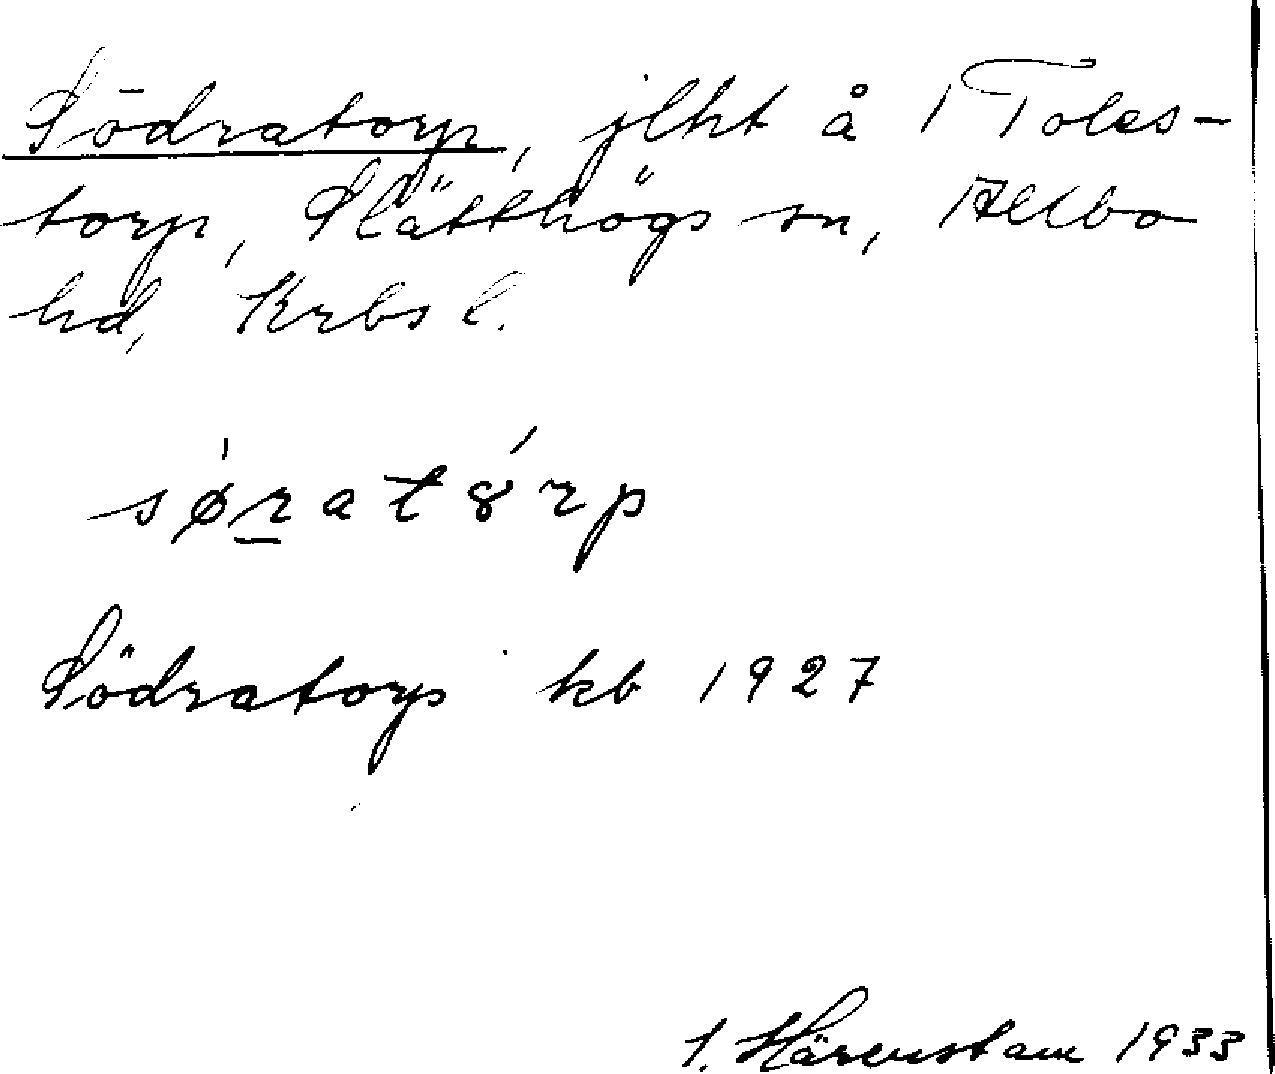 Södratorp, jlht å 1 Toles-
torp, Slätthögs sn, Allbo
hd, Krbs l.
sǿratȣ́rp
Södratorp kb 1927
I. Härenstam 1933